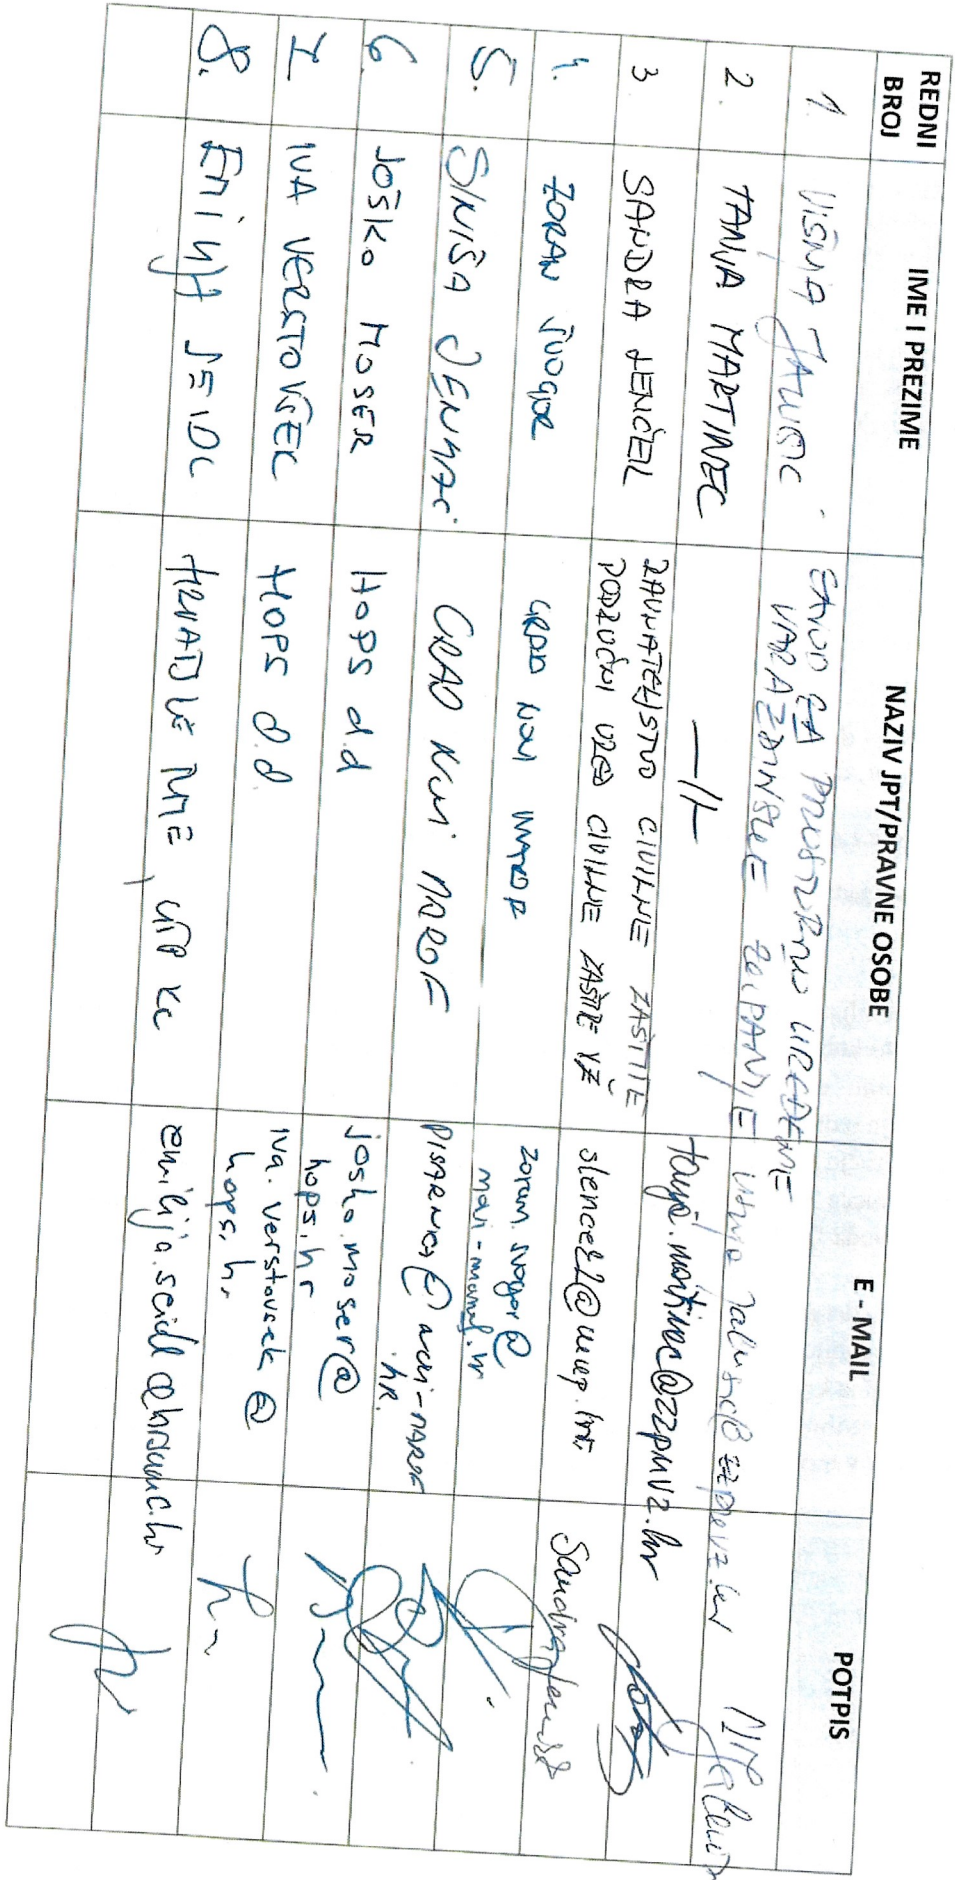 REDNI BROJ IME I PREZIME NAZIV JPT/PRAVNE OSOBE E - MAIL POTPIS
1. VIŠNJA JALUŠIĆ ZAVOD ZA PROSTORNO UREĐENJE
VARAŽDINSKE ŽUPANIJE
2. TANJA MARTINEC —//— tanja.martinec@zzpuvz.hr
3 SANDRA LENČEL RAVNATELJSTVO CIVILNE ZAŠTITE
PODRUČNI URED CIVILNE ZAŠTITE VŽ slencel@mup.hr
4. ZORAN ŠVOGOR GRAD NOVI MAROF zoran.svogor@
novi-marof.hr
5. SINIŠA JENKAČ GRAD NOVI MAROF PISARNICA@novi-MAROF
.hR.
6. JOŠKO MOSER HOPS d.d josko.moser@
hops.hr
7 IVA VERSTOVŠEK HOPS d.d. iva.verstovsek@
hops.hr
8. EMILIJA SEIDL HRVATSKE ŠUME, UŠP KC emilija.seidl@hrsume.hr